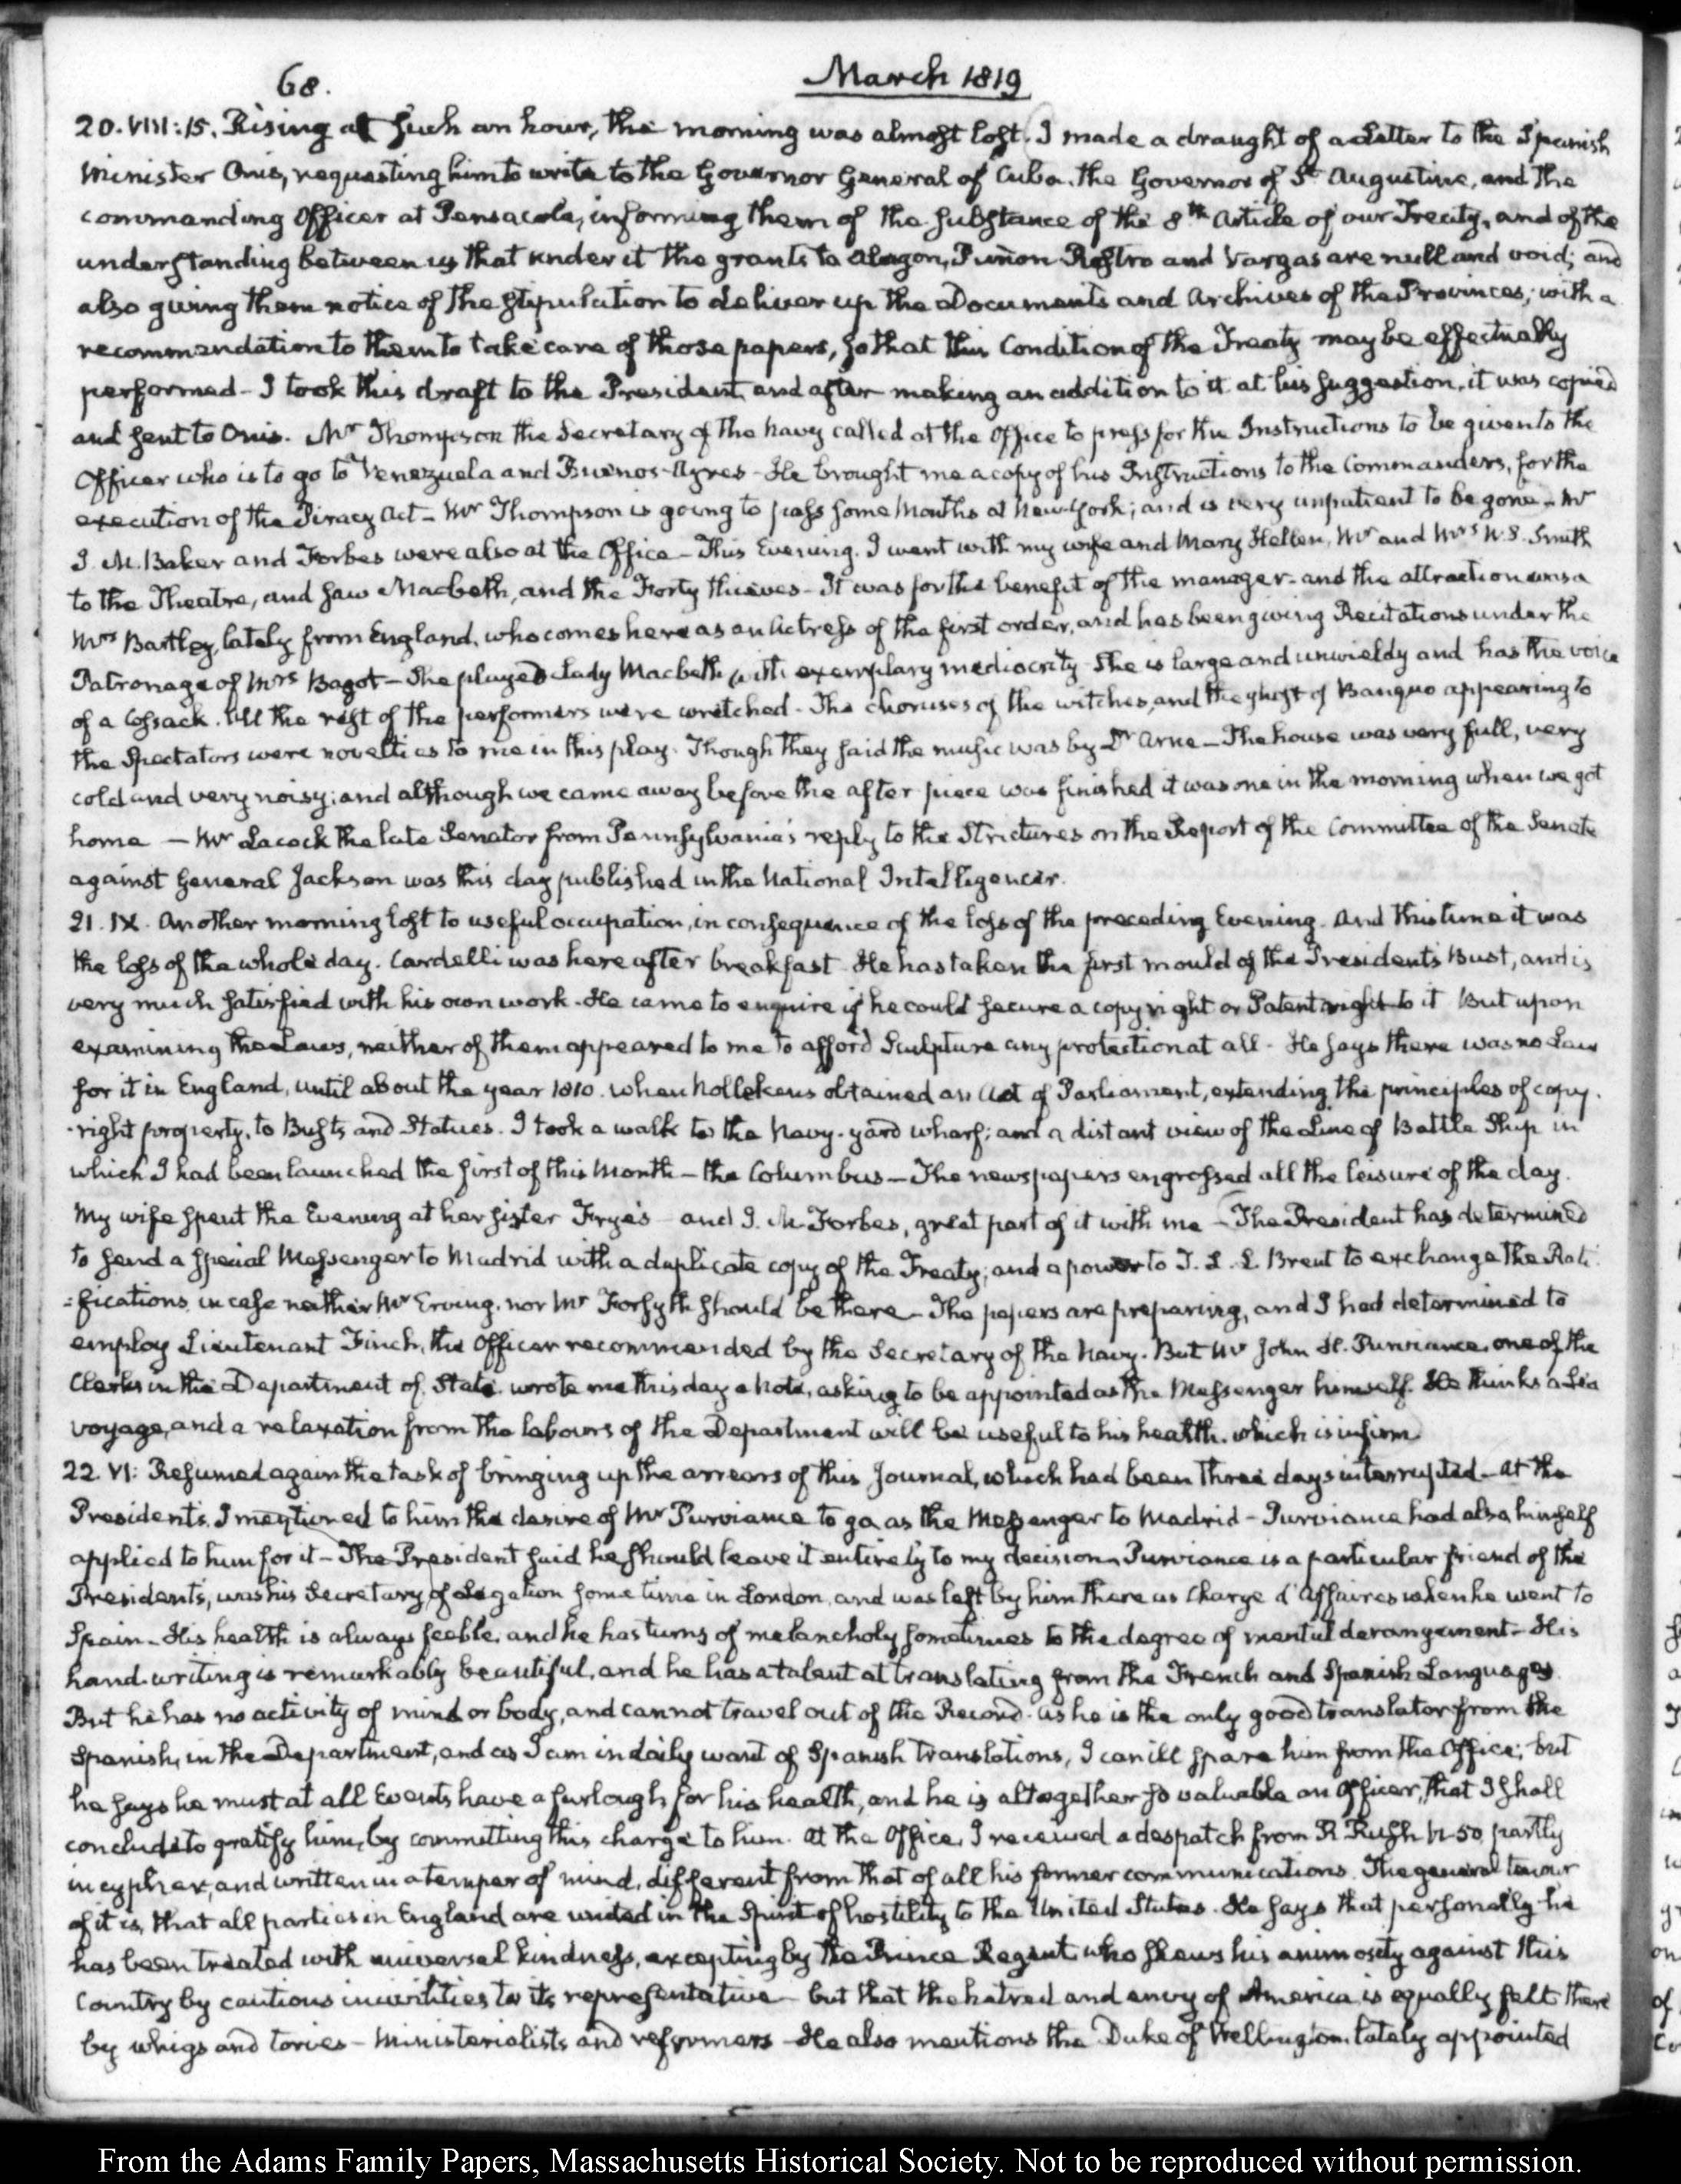 68.
March 1819
20. VIII:15. Rising at such an hour, the morning was almost lost. I made a draught of a Letter to the Spanish
Minister Onis, requesting him to write to the Governor General of Cuba, the Governor of St. Augustine, and the
commanding Officer at Pensacola, informing them of the substance of the 8th Article of our Treaty, and of the
understanding between us that under it the grants to Alagon, Puñon Rostro and Vargas are null and void; and
also giving them notice of the stipulation to deliver up the Documents and Archives of the Provinces; with a
recommendation to them to take care of those papers, so that this Condition of the Treaty may be effectually
performed - I took this draft to the President, and after making an addition to it at his suggestion, it was copied
and sent to Onis. Mr Thompson the Secretary of the Navy called at the Office to press for the Instructions to be given to the
Officer who is to go to Venezuela and Buenos-Ayres - He brought me a copy of his Instructions to the Commanders, for the
execution of the Piracy Act - Mr Thompson is going to pass some Months at New-York; and is very impatient to be gone - Mr
J. M. Baker and Forbes were also at the Office - This Evening, I went with my wife and Mary Hellen, Mr and Mrs W. S. Smith
to the Theatre, and saw Macbeth, and the Forty thieves - It was for the benefit of the manager - and the attraction was a
Mrs Bartley, lately from England, who comes here as an Actress of the first order, and has been giving Recitations under the
Patronage of Mrs Bagot - She played Lady Macbeth with exemplary mediocrity - She is large and unwieldy and has the voice
of a Cossack. All the rest of the performers were wretched - The choruses of the witches, and the ghost of Banquo appearing to
the Spectators were novelties to me in this play. Though they said the music was by Dr Arne - The house was very full, very
cold and very noisy; and although we came away before the after piece was finished it was one in the morning when we got
home — Mr Lacock the late Senator from Pennsylvania's reply to the Strictures on the Report of the Committee of the Senate
against General Jackson was this day published in the National Intelligencer.
21. IX. Another morning lost to useful occupation, in consequence of the loss of the preceding Evening. And this time it was
the loss of the whole day. Cardelli was here after breakfast. He has taken the first mould of the President's Bust, and is
very much satisfied with his own work. He came to enquire if he could secure a copy right or Patent right to it But upon
examining the Laws, neither of them appeared to me to afford Sculpture any protection at all - He says there was no Law
for it in England, until about the year 1810. when Nollekens obtained an Act of Parliament, extending the principles of copy-
-right property, to Busts and Statues. I took a walk to the Navy-yard wharf; and a distant view of the Line of Battle Ship in
which I had been launched the first of this Month - the Columbus - The newspapers engrossed all the leisure of the day.
My wife spent the Evening at her sister Frye's - and J. M. Forbes, great part of it with me - The President has determined
to send a special Messenger to Madrid with a duplicate copy of the Treaty; and a power to T. L. L. Brent to exchange the Rati
=fications, in case neither Mr Erving, nor Mr Forsyth should be there - The papers are preparing, and I had determined to
employ Lieutenant Finch, the Officer recommended by the Secretary of the Navy. But Mr John H. Purviance, one of the
Clerks in the Department of State, wrote me this day a Note, asking to be appointed as the Messenger himself. He thinks a Sea
voyage, and a relaxation from the labours of the Department will be useful to his health, which is infirm
22. VI: Resumed again the task of bringing up the arrears of this Journal, which had been three days interrupted - At the
Presidents. I mentioned to him the desire of Mr Purviance to go as the Messenger to Madrid - Purviance had also himself
applied to him for it - The President said he should leave it entirely to my decision - Purviance is a particular friend of the
Presidents, was his Secretary of Legation some time in London, and was left by him there as Chargé d'Affaires when he went to
Spain - His health is always feeble, and he has turns of melancholy sometimes to the degree of mental derangement - His
hand-writing is remarkably beautiful, and he has a talent at translating from the French and Spanish Languages.
But he has no activity of mind or body, and cannot travel out of the Record. As he is the only good translator from the
Spanish, in the Department, and as I am in daily want of Spanish translations, I can ill spare him from the Office; but
he says he must at all Events have a furlough for his health, and he is altogether so valuable an Officer, that I shall
conclude to gratify him, by committing this charge to him. At the Office, I received a despatch from R. Rush N. 50, partly
in cypher, and written in a temper of mind, different from that of all his former communications. The general tenour
of it is, that all parties in England are united in the Spirit of hostility to the United States. He says that personally he
has been treated with universal kindness, excepting by the Prince Regent, who shews his animosity against this
Country by cautious incivilities to its representative - but that the hatred and envy of America is equally felt there
by whigs and tories - Ministerialists and reformers - He also mentions the Duke of Wellington, lately appointed
From the Adams Family Papers, Massachusetts Historical Society. Not to be reproduced without permission.